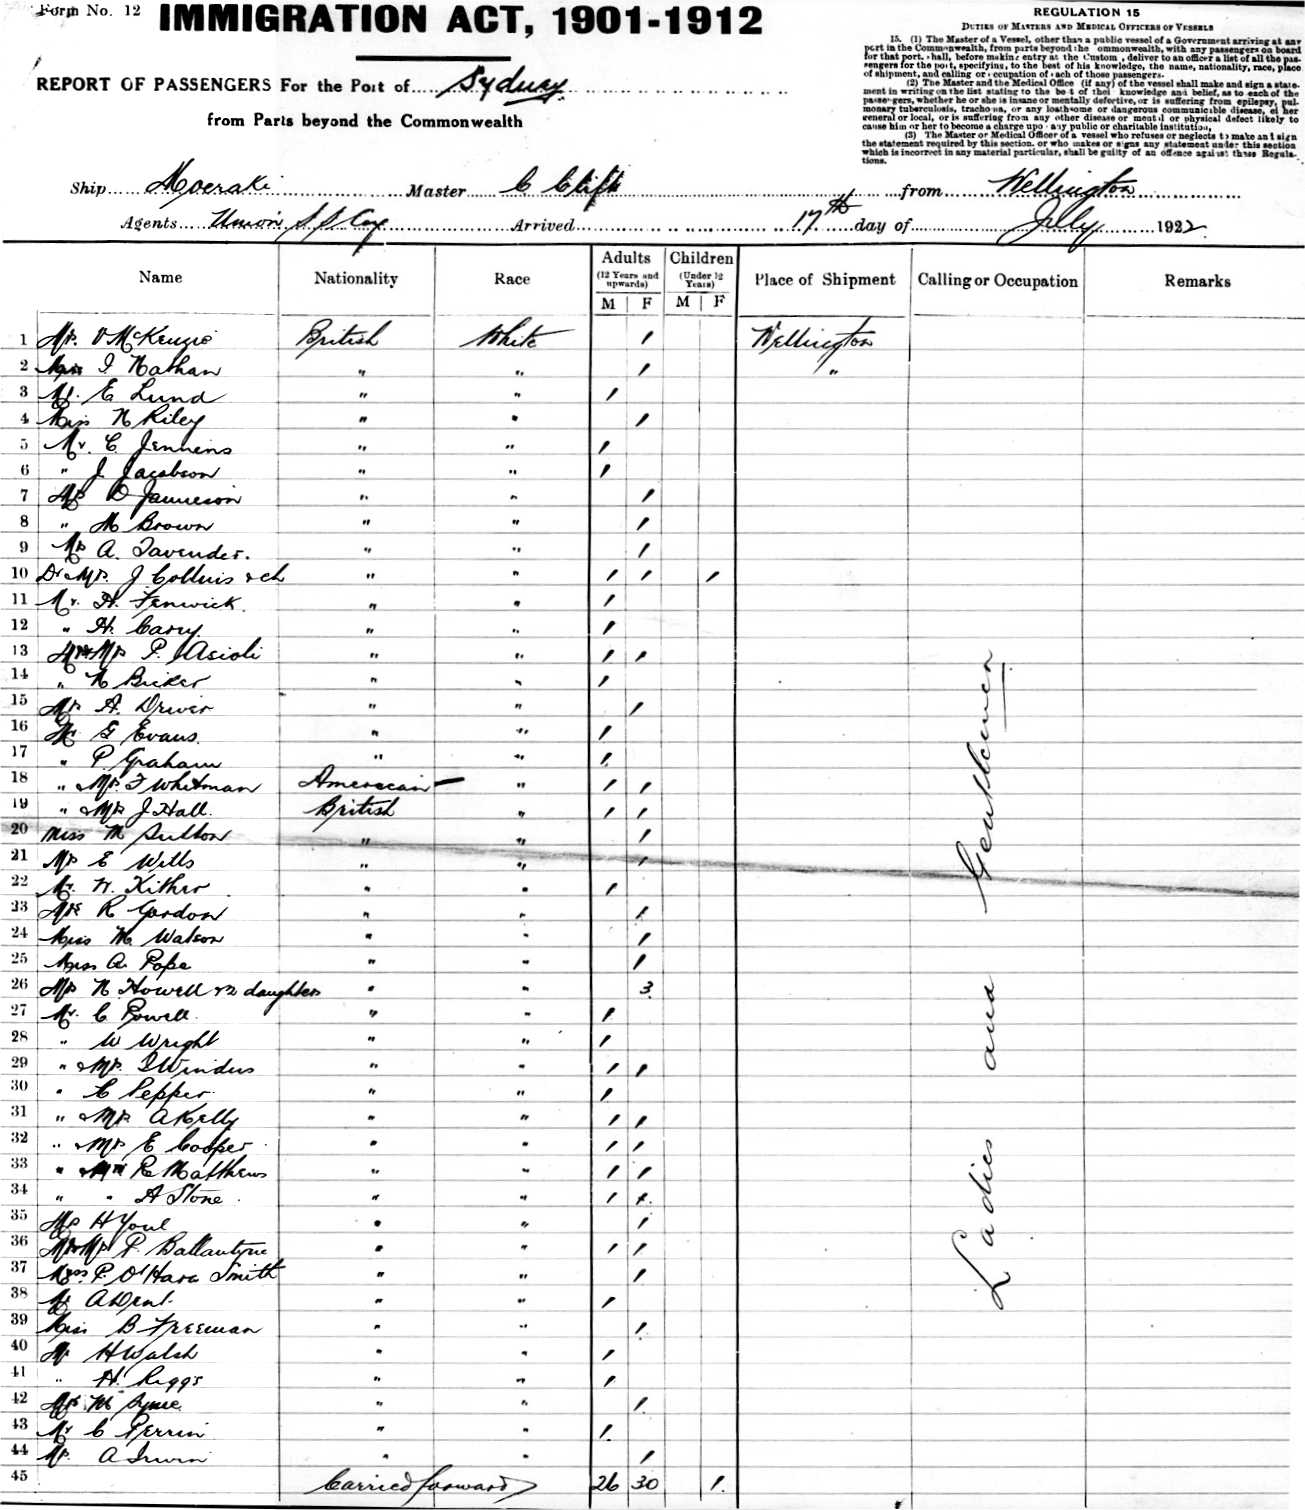 Form No. 12
IMMIGRATION ACT, 1901-1912
REPORT OF PASSENGERS For the Port of Sydney
from Parts beyond the Commonwealth
REGULATION 15
DUTIES OF MASTERS AND MEDICAL OFFICERS OF VESSELS
15. (1) The Master of a Vessel, other than a public vessel of a Government arriving at any
port in the Commonwealth, from parts beyond the ommonwealth, with any passengers on board
for that port, shall, before making entry at the Custom , deliver to an officer a list of all the pas-
sengers for the port, specifying, to the best of his knowledge, the name, nationality, race, place
of shipment, and calling or occupation of each of those passengers.
(2) The Master and the Medical Office (if any) of the vessel shall make and sign a state-
ment in writing on the list stating to the best of thei knowledge and belief, as to each of the
passengers, whether he or she is insane or mentally defective, or is suffering from epilepsy, pul-
monary tuberculosis, trachoma, or any loathsome or dangerous communicible disease, ei her
general or local, or is suffering from any other disease or mental or physical defect likely to
cause him or her to become a charge upon any public or charitable institution,
(3) The Master or Medical Officer of a vessel who refuses or neglects to make and sign
the statement required by this section, or who makes or signs any statement under this section
which is incorrect in any material particular, shall be guilty of an offence against these Regula-
tions.
Ship Moeraki Master C Clift from Wellington
Agents Union S S Coy Arrived 17th day of July 1922
Name Nationality Race Adults Children Place of Shipment Calling or Occupation Remarks
(12 Years and upwards) (Under 12 Years)
M F M F
1 Mrs. V McKenzie British White / Wellington
2 Miss I Nathan " " / "
3 Mr. E Lund " " /
4 Miss N Riley " " /
5 Mr. C Jennens " " /
6 " J Jacobson " " /
7 Mrs D Jamieson " " /
8 " M Brown " " /
9 Mrs A. Tavender. " " /
10 Dr & Mrs. J Collins & ch " " / / /
11 Mr. H. Fenwick. " " /
12 " H. Carry. " " /
13 Mr & Mrs P. Asioli " " / /
14 " N Bicker " " /
15 Mrs A. Driver " " /
16 Mr G Evans. " " /
17 " P. Graham " " /
18 " & Mrs. F Whitman American " / /
19 " & Mrs J Hall. British " / /
20 Miss M Sutton " " /
21 Mrs E Wells " " /
22 Mr. W. Kither " " /
23 Mrs R Gordon " " /
24 Miss M Watson " " /
25 Miss A. Pope " " /
26 Mrs N. Howell & 2 daughters " " 3
27 Mr. C Powell " " /
28 " W Wright " " /
29 " & Mrs. Windus " " / /
30 " C Pepper " " /
31 " & Mrs A Kelly " " / /
32 " & Mrs E Cooper " " / /
33 " & Mrs R Matthews " " / /
34 " " A Stone " " / /
35 Mrs H Youl " " /
36 Mr & Mrs P. Ballantyne " " / /
37 Miss P. O'Hara Smith " " /
38 Mr A Dent. " " /
39 Miss B Freeman " " /
40 Mr H Walsh " " /
41 " H. Riggs " " /
42 Mrs M Syme " " /
43 Mr C Perrin " " /
44 Mrs. A Irwin " " /
45 Carried forward 26 30 1.
Ladies and Gentlemen